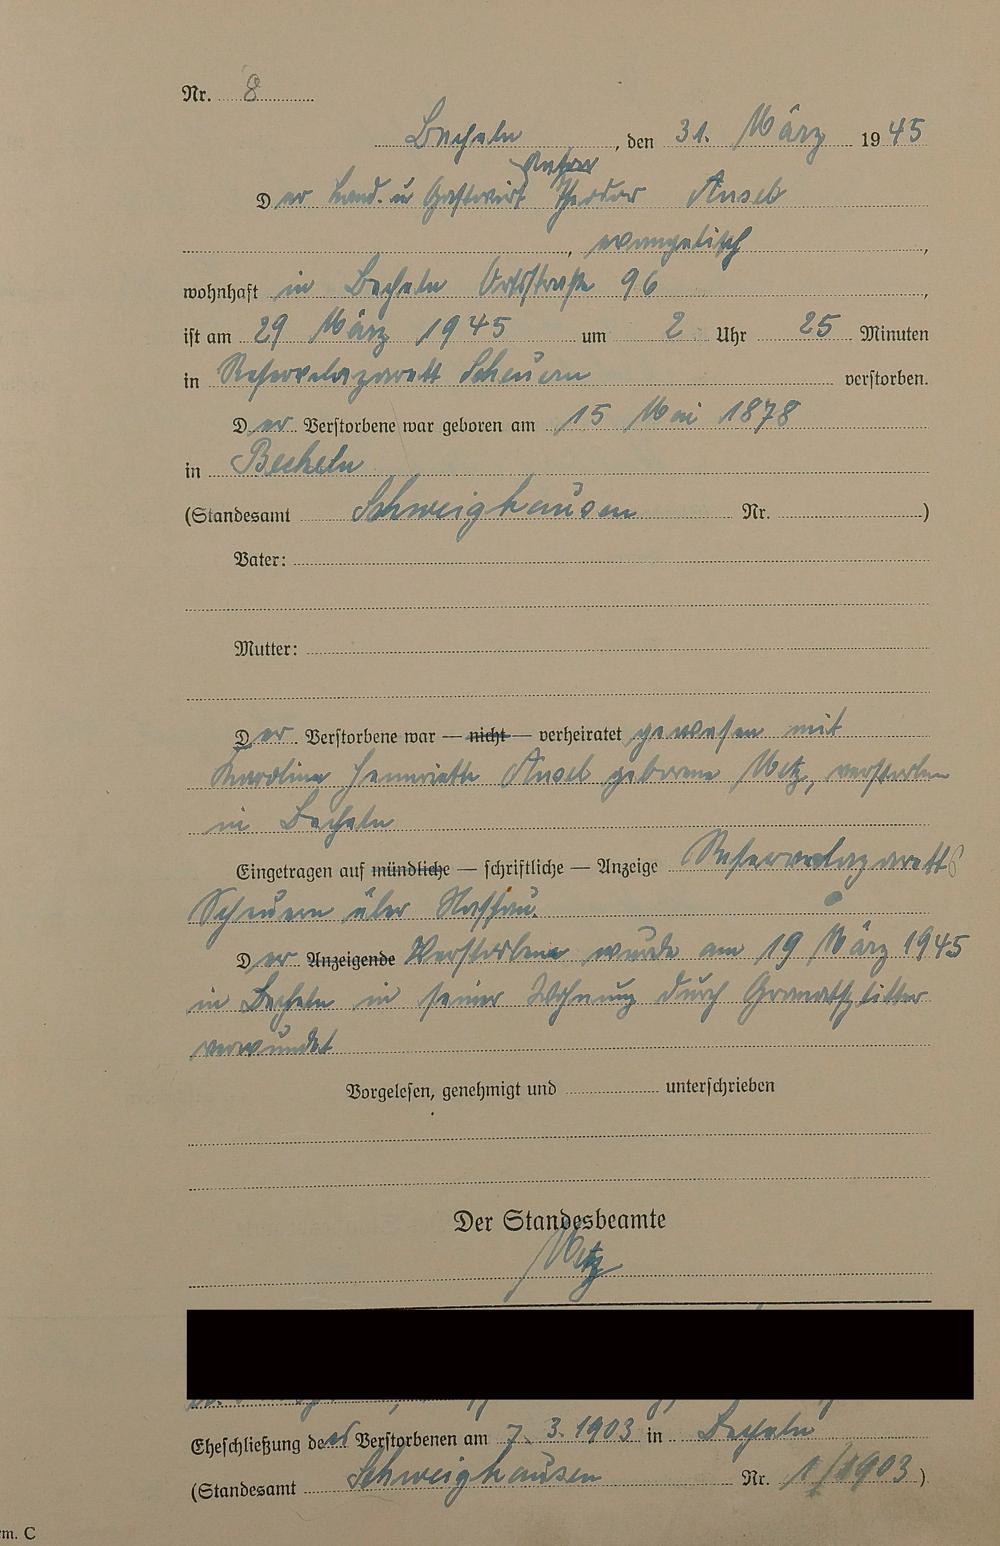 Nr. 8
Becheln, den 31. März 1945
Der Land. u Gastwirt Theodor Ansel
, evangelisch,
wohnhaft in Becheln Ortsstraße 96,
ist am 29 März 1945 um 2 Uhr 25 Minuten
in Reservelazarett Scheuern verstorben.
Der Verstorbene war geboren am 15 Mai 1878
in Becheln
(Standesamt Schweighausen Nr. )
Vater:
Mutter:
Der Verstorbene war — nicht — verheiratet gewesen mit
Karoline Henriette Ansel geborene Metz, verstorben
in Becheln
Eingetragen auf mündliche — schriftliche — Anzeige Reservelazaretts
Scheuern über Nassau.
Der Anzeigende Verstorbene wurde am 19 März 1945
in Becheln in seiner Wohnung durch Granatsplitter
verwundet
Vorgelesen, genehmigt und unterschrieben
Der Standesbeamte
Metz
Eheschließung des Verstorbenen am 7. 3. 1903 in Becheln
(Standesamt Schweighausen Nr. 1/1903)
rm. C